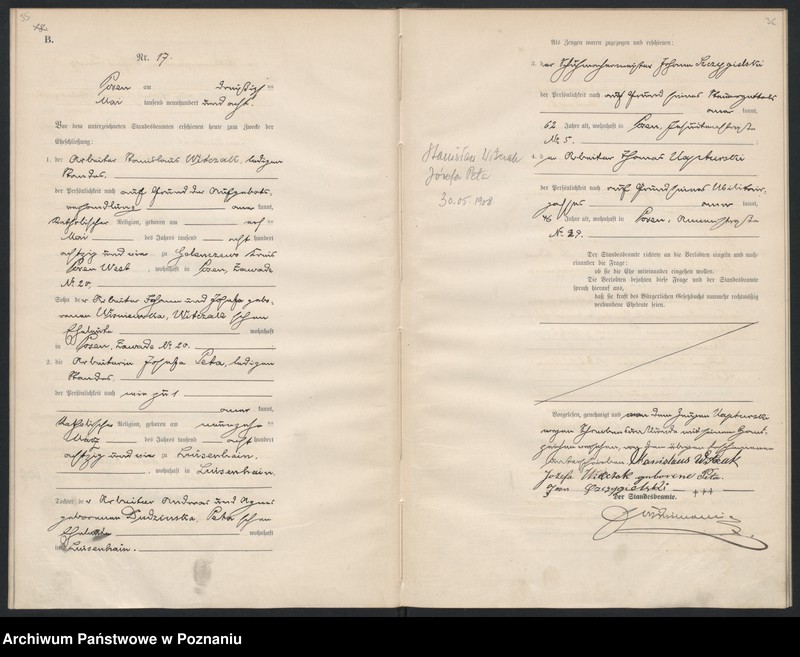 B.
Nr. 17.
Posen am dreißigsten
Mai tausend neunhundert und acht.
Vor dem unterzeichneten Standesbeamten erschienen heute zum Zwecke der
Eheschließung:
1. der Arbeiter Stanislaus Witczak, ledigen
Standes,
der Persönlichkeit nach auf Grund der Aufgebots-
verhandlung kannt,
katholischer Religion, geboren am elf
Mai des Jahres tausend acht hundert
achtzig und eins zu Kreis
Posen West, wohnhaft in Posen, Zawade
Nr. 20.
Sohn der Arbeiter Johann und Josefa gebo-
renen Wisniewska, Witczak'schen
Eheleute wohnhaft
in Posen, Zawade Nr. 20.
2. die Arbeiterin Josefa Peta, ledigen
Standes,
der Persönlichkeit nach wie zu 1
kannt,
katholischer Religion, geboren am
März des Jahres tausend acht hundert
achtzig und eins zu Luisenhain,
, wohnhaft in Luisenhain.
Tochter der Arbeiter Andreas und Agnes
geborenen Dudzinska, Peta'schen
Eheleute wohnhaft
in Luisenhain.
Als Zeugen waren zugezogen und erschienen:
3. der Schuhmachermeister Johann
der Persönlichkeit nach auf Grund seines Steuerzettels
kannt,
62 Jahre alt, wohnhaft in Posen,
Nr. 5.
4. der Arbeiter Thomas Kapturski
der Persönlichkeit nach auf Grund seines Militär-
passes kannt,
46 Jahre alt, wohnhaft in Posen,
Nr. 29.
Stanisław Witczak
Józefa Peta
30.05.1908
Der Standesbeamte richtete an die Verlobten einzeln und nach-
einander die Frage:
ob sie die Ehe miteinander eingehen wollen.
Die Verlobten bejahten diese Frage und der Standesbeamte
sprach hierauf aus,
daß sie kraft des Bürgerlichen Gesetzbuchs nunmehr rechtmäßig
verbundene Eheleute seien.
Vorgelesen, genehmigt und von dem Zeugen Kapturski
wegen Schreibensunkunde mit seinem Hand-
zeichen versehen, von den übrigen Erschienenen
unterschrieben Stanislaus Witczak
Josefa Witczak geborene Peta.
Jan +++
Der Standesbeamte.
Archiwum Państwowe w Poznaniu